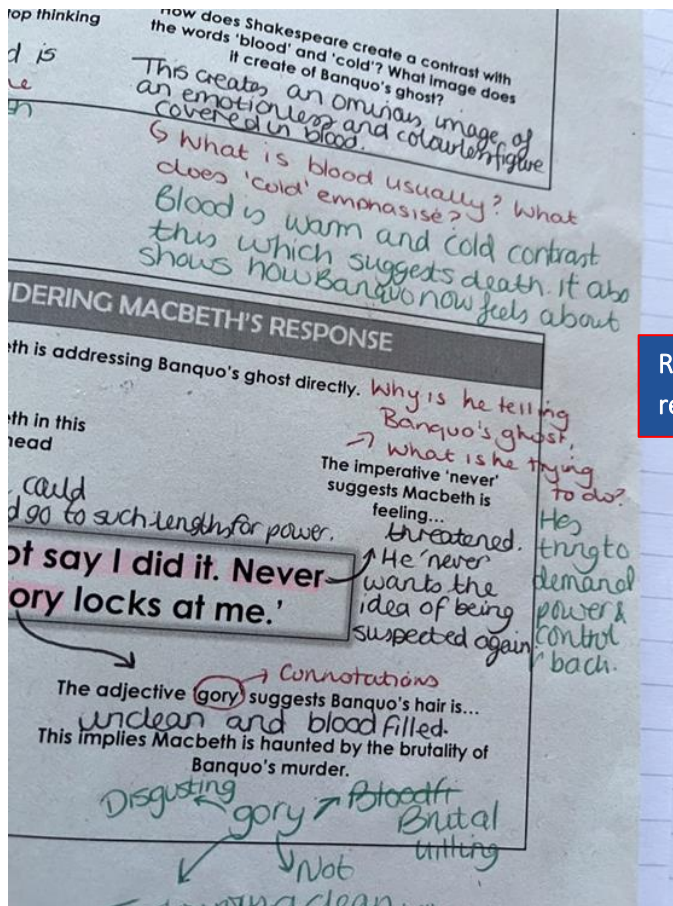 op thinking
d is
How does Shakespeare create a contrast with
the words 'blood' and 'cold'? What image does
it create of Banquo's ghost?
This creates an ominous image of
an emotionless and colourless figure
covered in blood.
↳ What is blood usually? What
does 'cold' emphasise?
Blood is warm and cold contrast
this which suggests death. It also
shows how Banquo now feels about
DERING MACBETH'S RESPONSE
eth is addressing Banquo's ghost directly.
Why is he telling
Banquo's ghost,
→ What is he trying
to do?
eth in this
head
could
d go to such lengths for power.
The imperative 'never'
suggests Macbeth is
feeling...
threatened.
He 'never'
wants the
idea of being
suspected again.
Hes
tring to
demand
power &
control
back.
ot say I did it. Never
ory locks at me.'
→ Connotations
The adjective gory suggests Banquo's hair is...
unclean and blood filled.
This implies Macbeth is haunted by the brutality of
Banquo's murder.
Disgusting
gory
Brutal
Not
clean
R
re